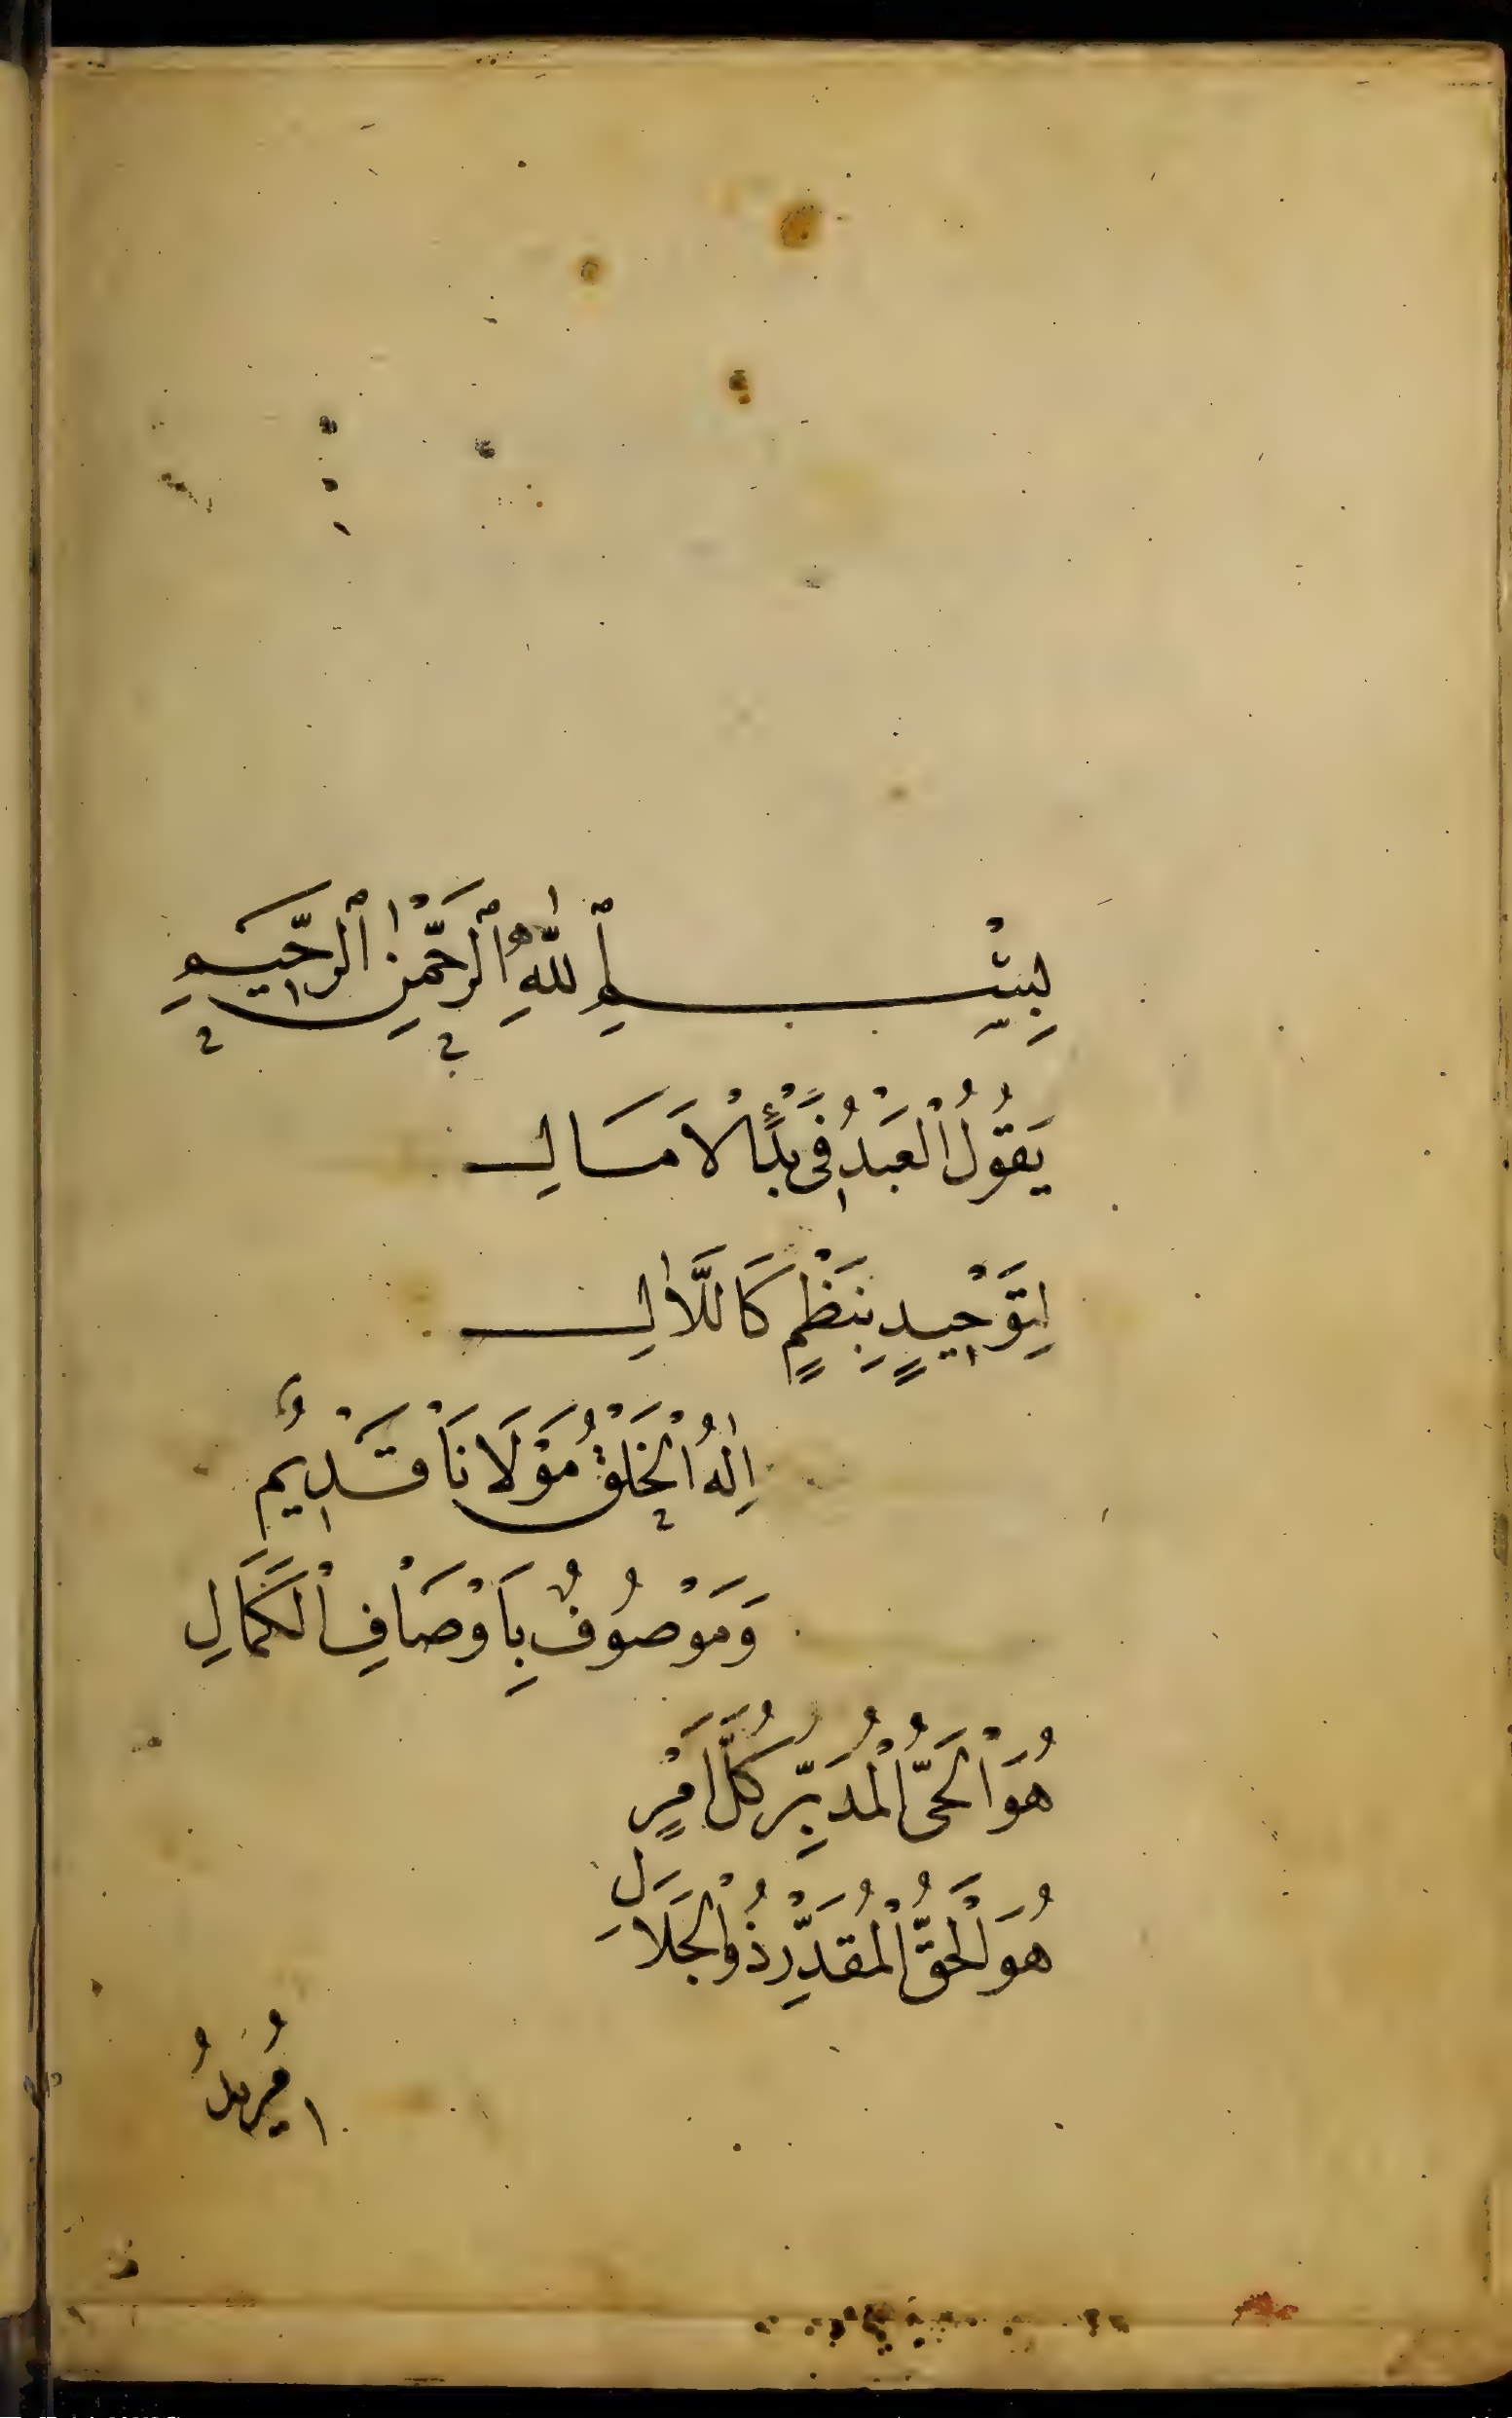 بِسْمِ ٱللّٰهِ ٱلرَّحْمٰنِ ٱلرَّحِيمِ
يَقُولُ الْعَبْدُ فِى بَدْءِ الْاَمَالِ
لِتَوْحِيدٍ بِنَظْمٍ كَاللَّاٰلِ
اِلٰهُ الْخَلْقِ مَوْلَانَا قَدِيمٌ
وَمَوْصُوفٌ بِاَوْصَافِ الْكَمَالِ
هُوَ الْحَىُّ الْمُدَبِّرُ كُلَّ اَمْرٍ
هُوَ الْحَقُّ الْمُقَدِّرُ ذُو الْجَلَالِ
مُرِيدُ